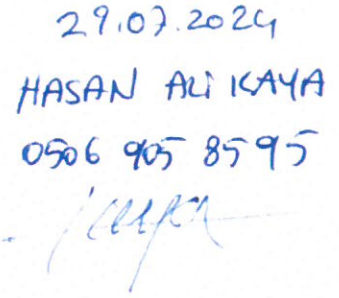 29.07.2024
HASAN ALİ KAYA
0506 905 8595